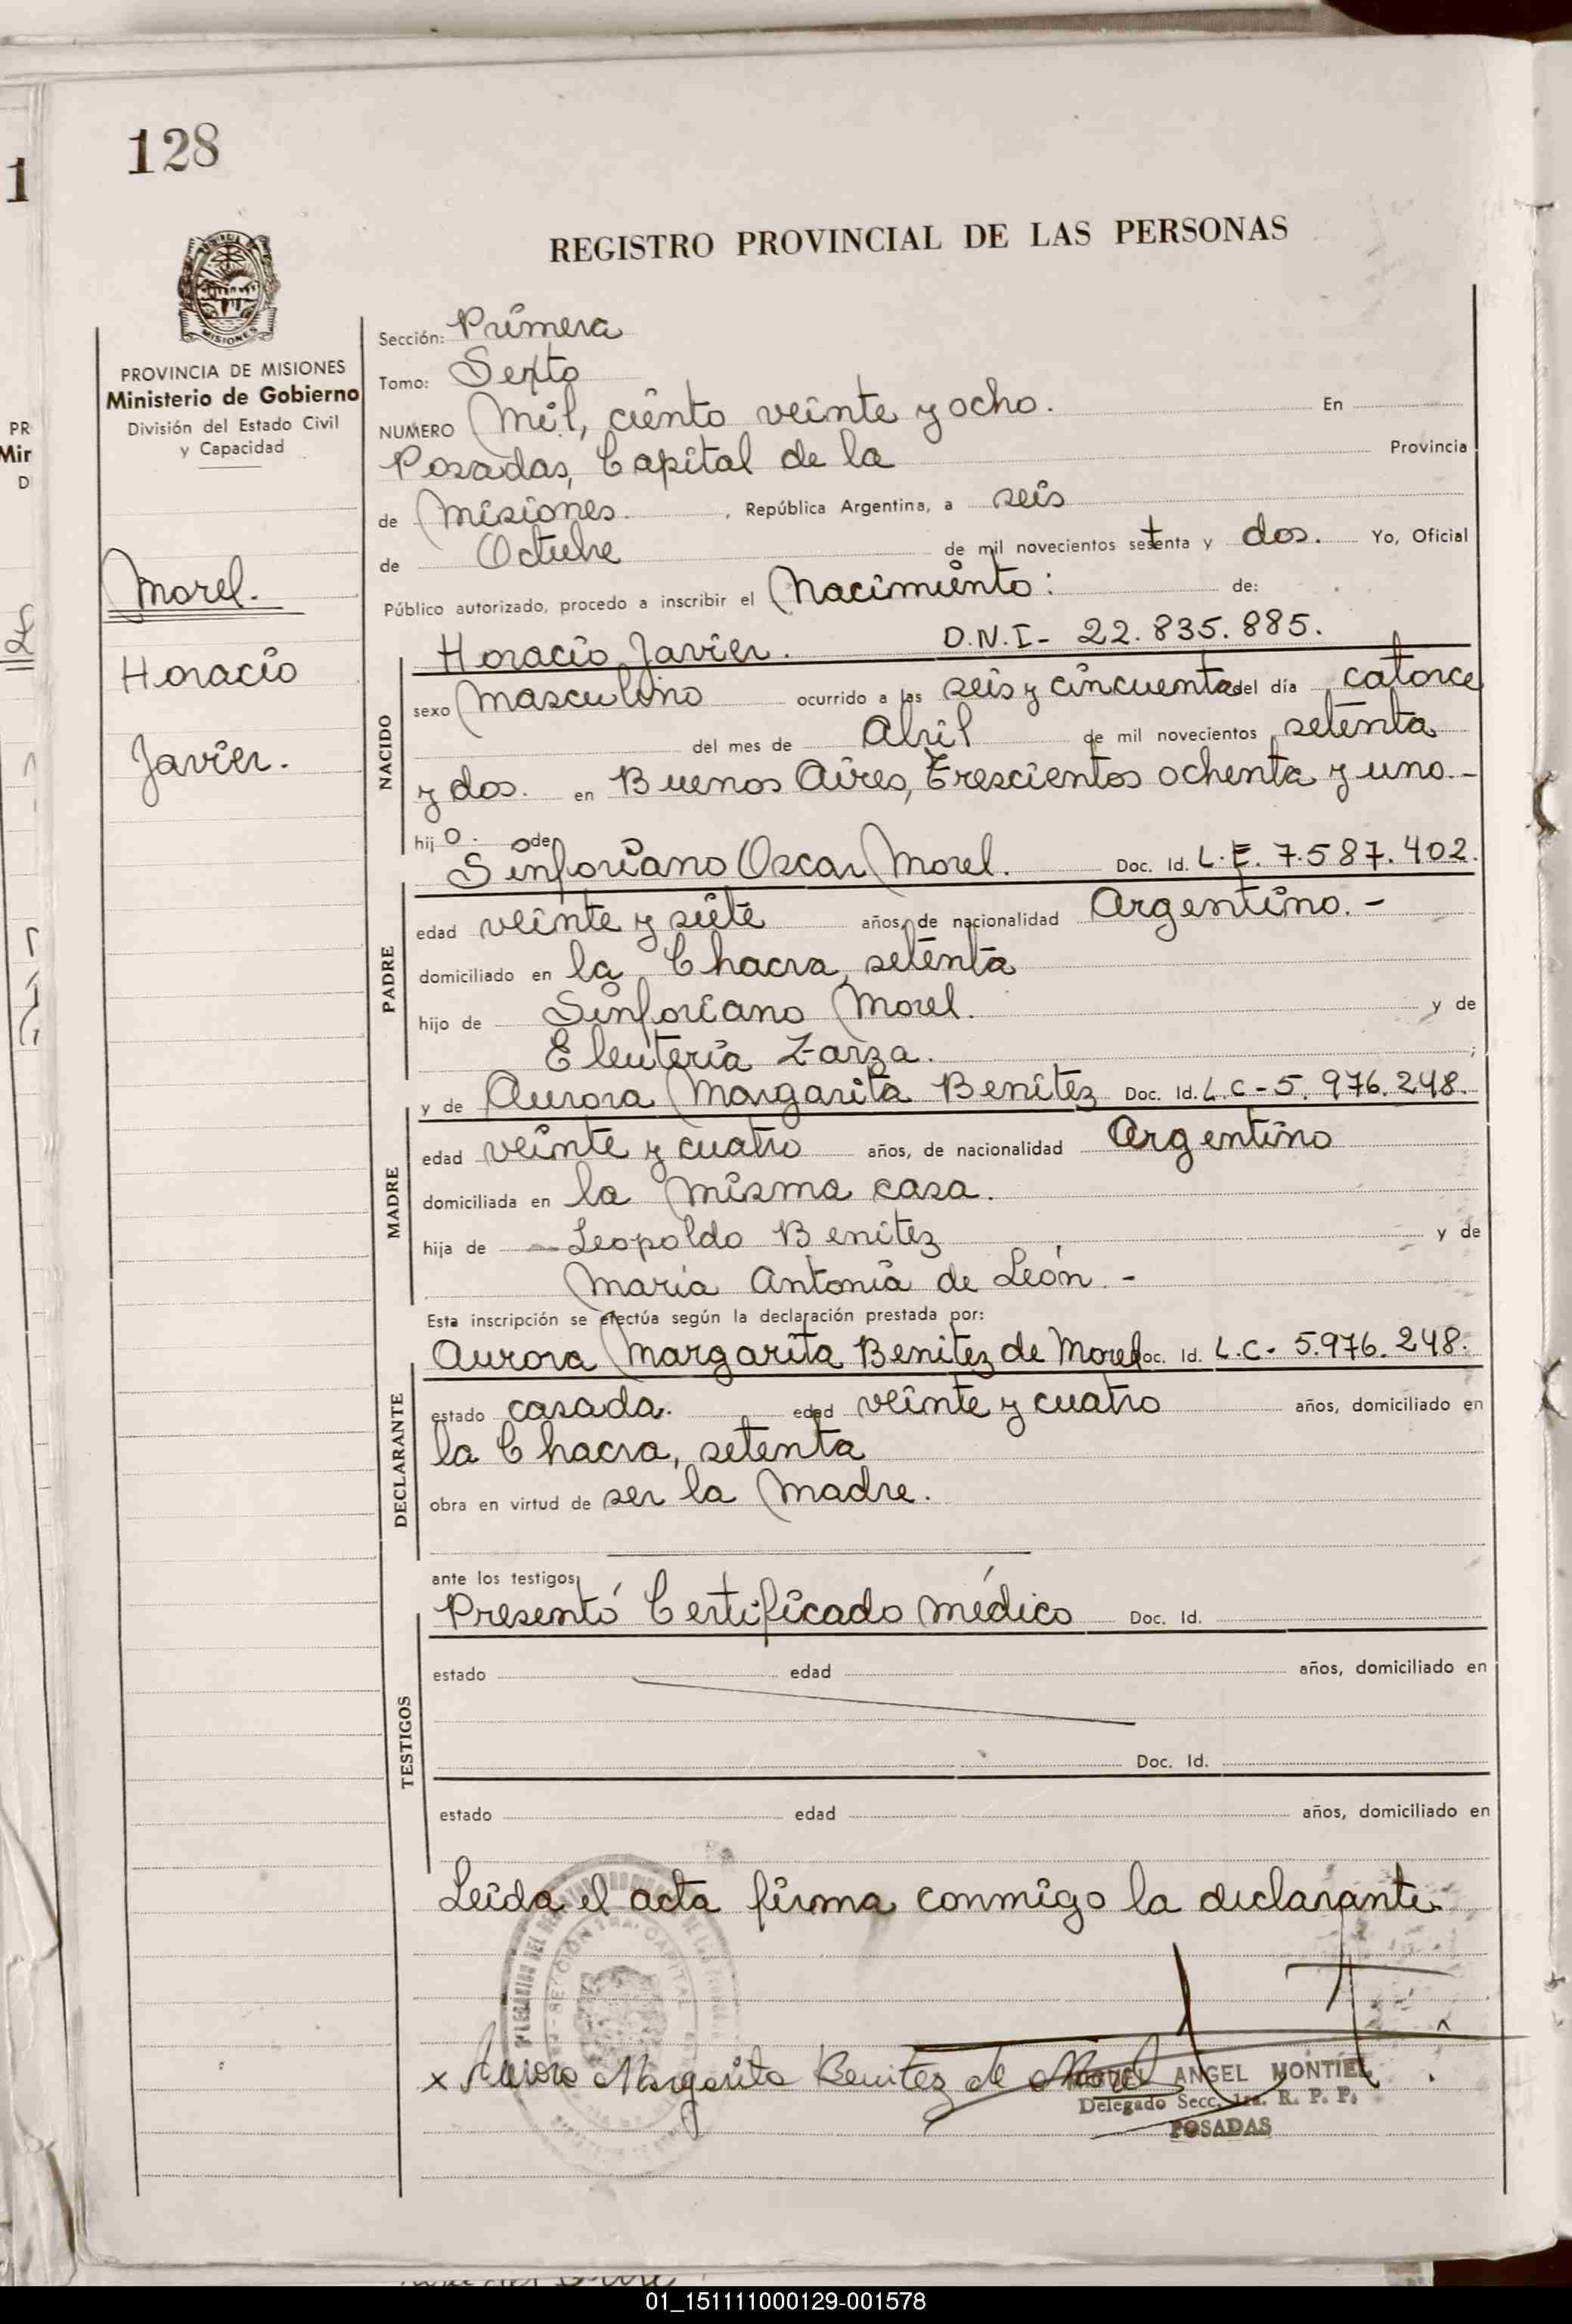 128
1
REGISTRO PROVINCIAL DE LAS PERSONAS
MISIONES
PROVINCIA DE MISIONES
Ministerio de Gobierno
División del Estado Civil
y Capacidad
PR
Mir
D
Morel.
Horacio
Javier.
Sección: Primera
Tomo: Sexto
NUMERO Mil, ciento veinte y ocho. En
Posadas, Capital de la Provincia
de Misiones. , República Argentina, a seis
de Octubre de mil novecientos setenta y dos. Yo, Oficial
Público autorizado, procedo a inscribir el Nacimiento: de:
Horacio Javier. D.N.I- 22.835.885.
NACIDO
sexo Masculino ocurrido a las seis y cincuenta del día catorce
del mes de Abril de mil novecientos setenta
y dos. en Buenos Aires, Trescientos ochenta y uno.-
hij o. de
Sinforiano Oscar Morel. Doc. Id. L.E. 7.587.402.
PADRE
edad veinte y siete años, de nacionalidad Argentino.-
domiciliado en la Chacra, setenta
hijo de Sinforiano Morel. y de
Eleuteria Zarza. ;
y de Aurora Margarita Benítez Doc. Id. L.C-5.976.248.
MADRE
edad veinte y cuatro años, de nacionalidad Argentino
domiciliada en la misma casa.
hija de Leopoldo Benítez y de
María Antonia de León.-
Esta inscripción se efectúa según la declaración prestada por:
Aurora Margarita Benitez de Morel Doc. Id. L.C- 5.976.248.
DECLARANTE
estado casada. edad veinte y cuatro años, domiciliado en
la Chacra, setenta
obra en virtud de ser la Madre.
ante los testigos:
Presentó Certificado médico Doc. Id.
TESTIGOS
estado edad años, domiciliado en
Doc. Id.
estado edad años, domiciliado en
Leida el acta firma conmigo la declarante.
x Aurora Margarita Benitez de Morel
ANGEL MONTIEL
Delegado Secc. 1ra. R. P. P.
POSADAS
01_151111000129-001578